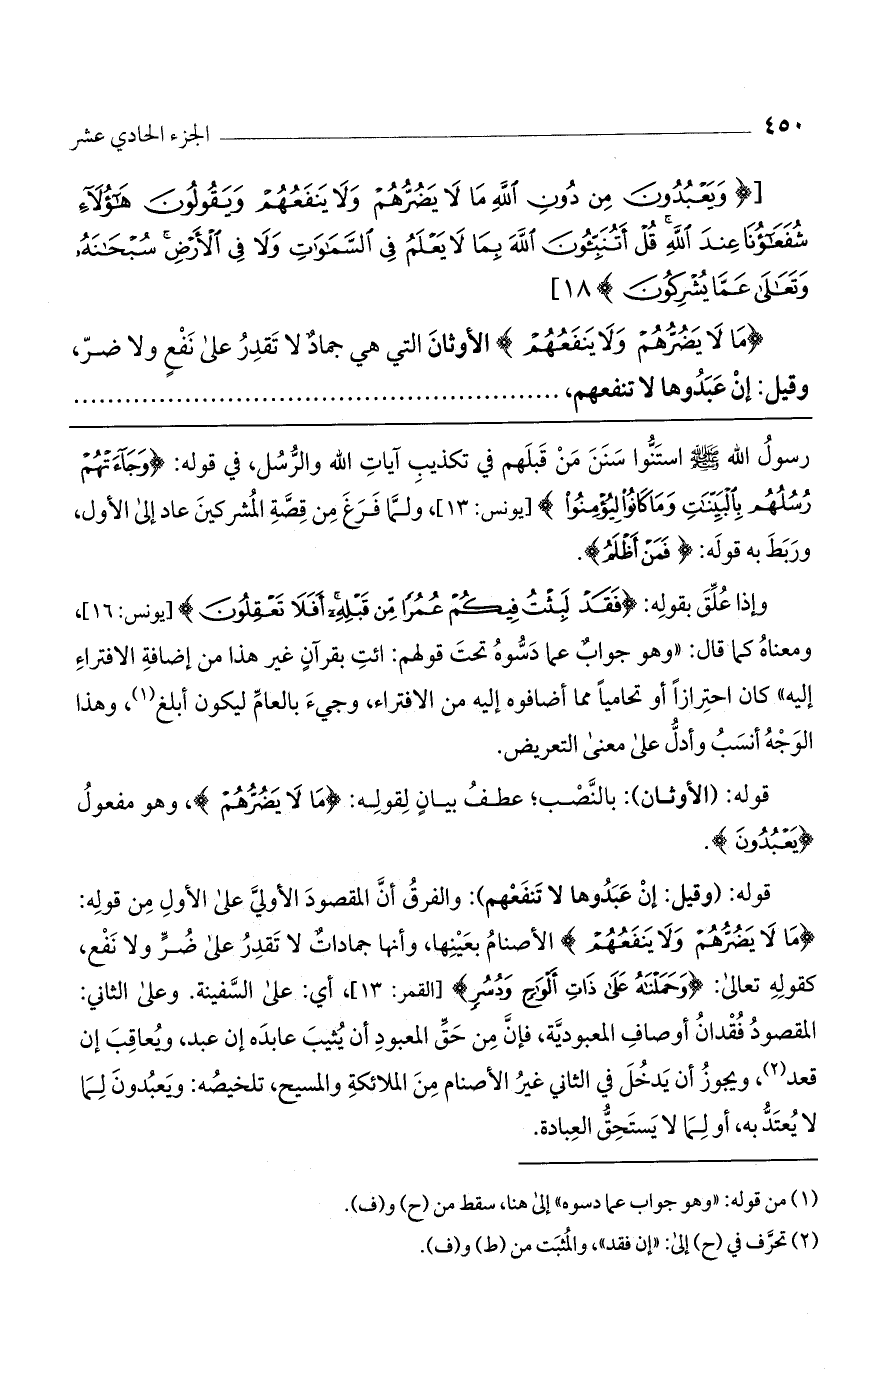 ٤٥٠ الجزء الحادي عشر
[﴿ وَيَعْبُدُونَ مِن دُونِ ٱللَّهِ مَا لَا يَضُرُّهُمْ وَلَا يَنفَعُهُمْ وَيَقُولُونَ هَٰٓؤُلَآءِ
شُفَعَٰٓؤُنَا عِندَ ٱللَّهِ ۚ قُلْ أَتُنَبِّـُٔونَ ٱللَّهَ بِمَا لَا يَعْلَمُ فِى ٱلسَّمَٰوَٰتِ وَلَا فِى ٱلْأَرْضِ ۚ سُبْحَٰنَهُۥ
وَتَعَٰلَىٰ عَمَّا يُشْرِكُونَ ﴾ ١٨]
﴿مَا لَا يَضُرُّهُمْ وَلَا يَنفَعُهُمْ ﴾ الأوثانَ التي هي جمادٌ لا تَقدِرُ علىٰ نَفْعٍ ولا ضرّ،
وقيل: إنْ عَبَدُوها لا تنفعهم، ..........................................................
رسولُ الله ﷺ استَنُّوا سَنَنَ مَنْ قَبلَهم في تكذيبِ آياتِ الله والرُّسُل، في قوله: ﴿وَجَآءَتْهُمْ
رُسُلُهُم بِٱلْبَيِّنَٰتِ وَمَا كَانُوا۟ لِيُؤْمِنُوا۟ ﴾ [يونس: ١٣]، ولـمَّا فَرَغَ مِن قِصَّةِ المُشركينَ عاد إلىٰ الأول،
ورَبَطَ به قولَه: ﴿ فَمَنْ أَظْلَمُ﴾.
وإذا عُلِّقَ بقولِه: ﴿فَقَدْ لَبِثْتُ فِيكُمْ عُمُرًا مِّن قَبْلِهِۦٓ ۚ أَفَلَا تَعْقِلُونَ ﴾ [يونس: ١٦]،
ومعناهُ كما قال: «وهو جوابٌ عما دَسُّوهُ تحتَ قولهم: ائتِ بقرآنٍ غير هذا من إضافةِ الافتراءِ
إليه» كان احتِرازاً أو تحامياً مما أضافوه إليه من الافتراء، وجيءَ بالعامِّ ليكون أبلغ(١)، وهذا
الوَجْهُ أنسَبُ وأدلُّ علىٰ معنىٰ التعريض.
قوله: (الأوثان): بالنَّصْب؛ عطفُ بيانٍ لِقولِه: ﴿مَا لَا يَضُرُّهُمْ ﴾، وهو مفعولُ
﴿يَعْبُدُونَ ﴾.
قوله: (وقيل: إنْ عَبَدُوها لا تَنفَعْهم): والفرقُ أنَّ المقصودَ الأوليَّ علىٰ الأولِ مِن قولِه:
﴿مَا لَا يَضُرُّهُمْ وَلَا يَنفَعُهُمْ ﴾ الأصنامُ بعَيْنِها، وأنها جماداتٌ لا تَقدِرُ علىٰ ضُرٍّ ولا نَفْع،
كقولِهِ تعالىٰ: ﴿وَحَمَلْنَٰهُ عَلَىٰ ذَاتِ أَلْوَٰحٍ وَدُسُرٍ﴾ [القمر: ١٣]، أي: علىٰ السَّفينة. وعلىٰ الثاني:
المقصودُ فُقْدانُ أوصافِ المعبوديَّة، فإنَّ مِن حَقِّ المعبودِ أن يُثيبَ عابدَه إن عبد، ويُعاقِبَ إن
قعد(٢)، ويجوزُ أن يَدخُلَ في الثاني غيرُ الأصنام مِنَ الملائكةِ والمسيح، تلخيصُه: ويَعبُدونَ لِـمَا
لا يُعتَدُّ به، أو لِـمَا لا يَستَحِقُّ العِبادة.
(١) من قوله: «وهو جواب عما دسوه» إلىٰ هنا، سقط من (ح) و(ف).
(٢) تحرَّف في (ح) إلىٰ: «إن فقد»، والمُثبَت من (ط) و(ف).